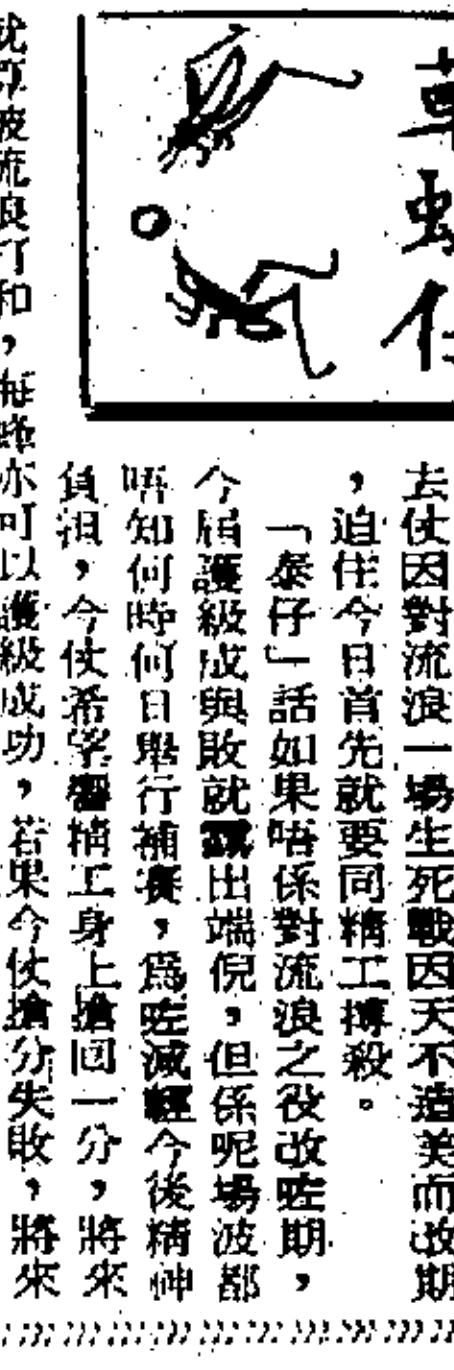 草蜢仔
去仗因對流浪一場生死戰因天不造美而改期
，迫住今日首先就要同精工搏殺。
「泰仔」話如果唔係對流浪之役改咗期，
今屆護級成與敗就露出端倪，但係呢場波都
唔知何時何日舉行補賽，爲咗減輕今後精神
負担，今仗希望響精工身上搶回一分，將來
就算被流浪打和，海蜂亦可以護級成功，若果今仗搶分失敗，將來